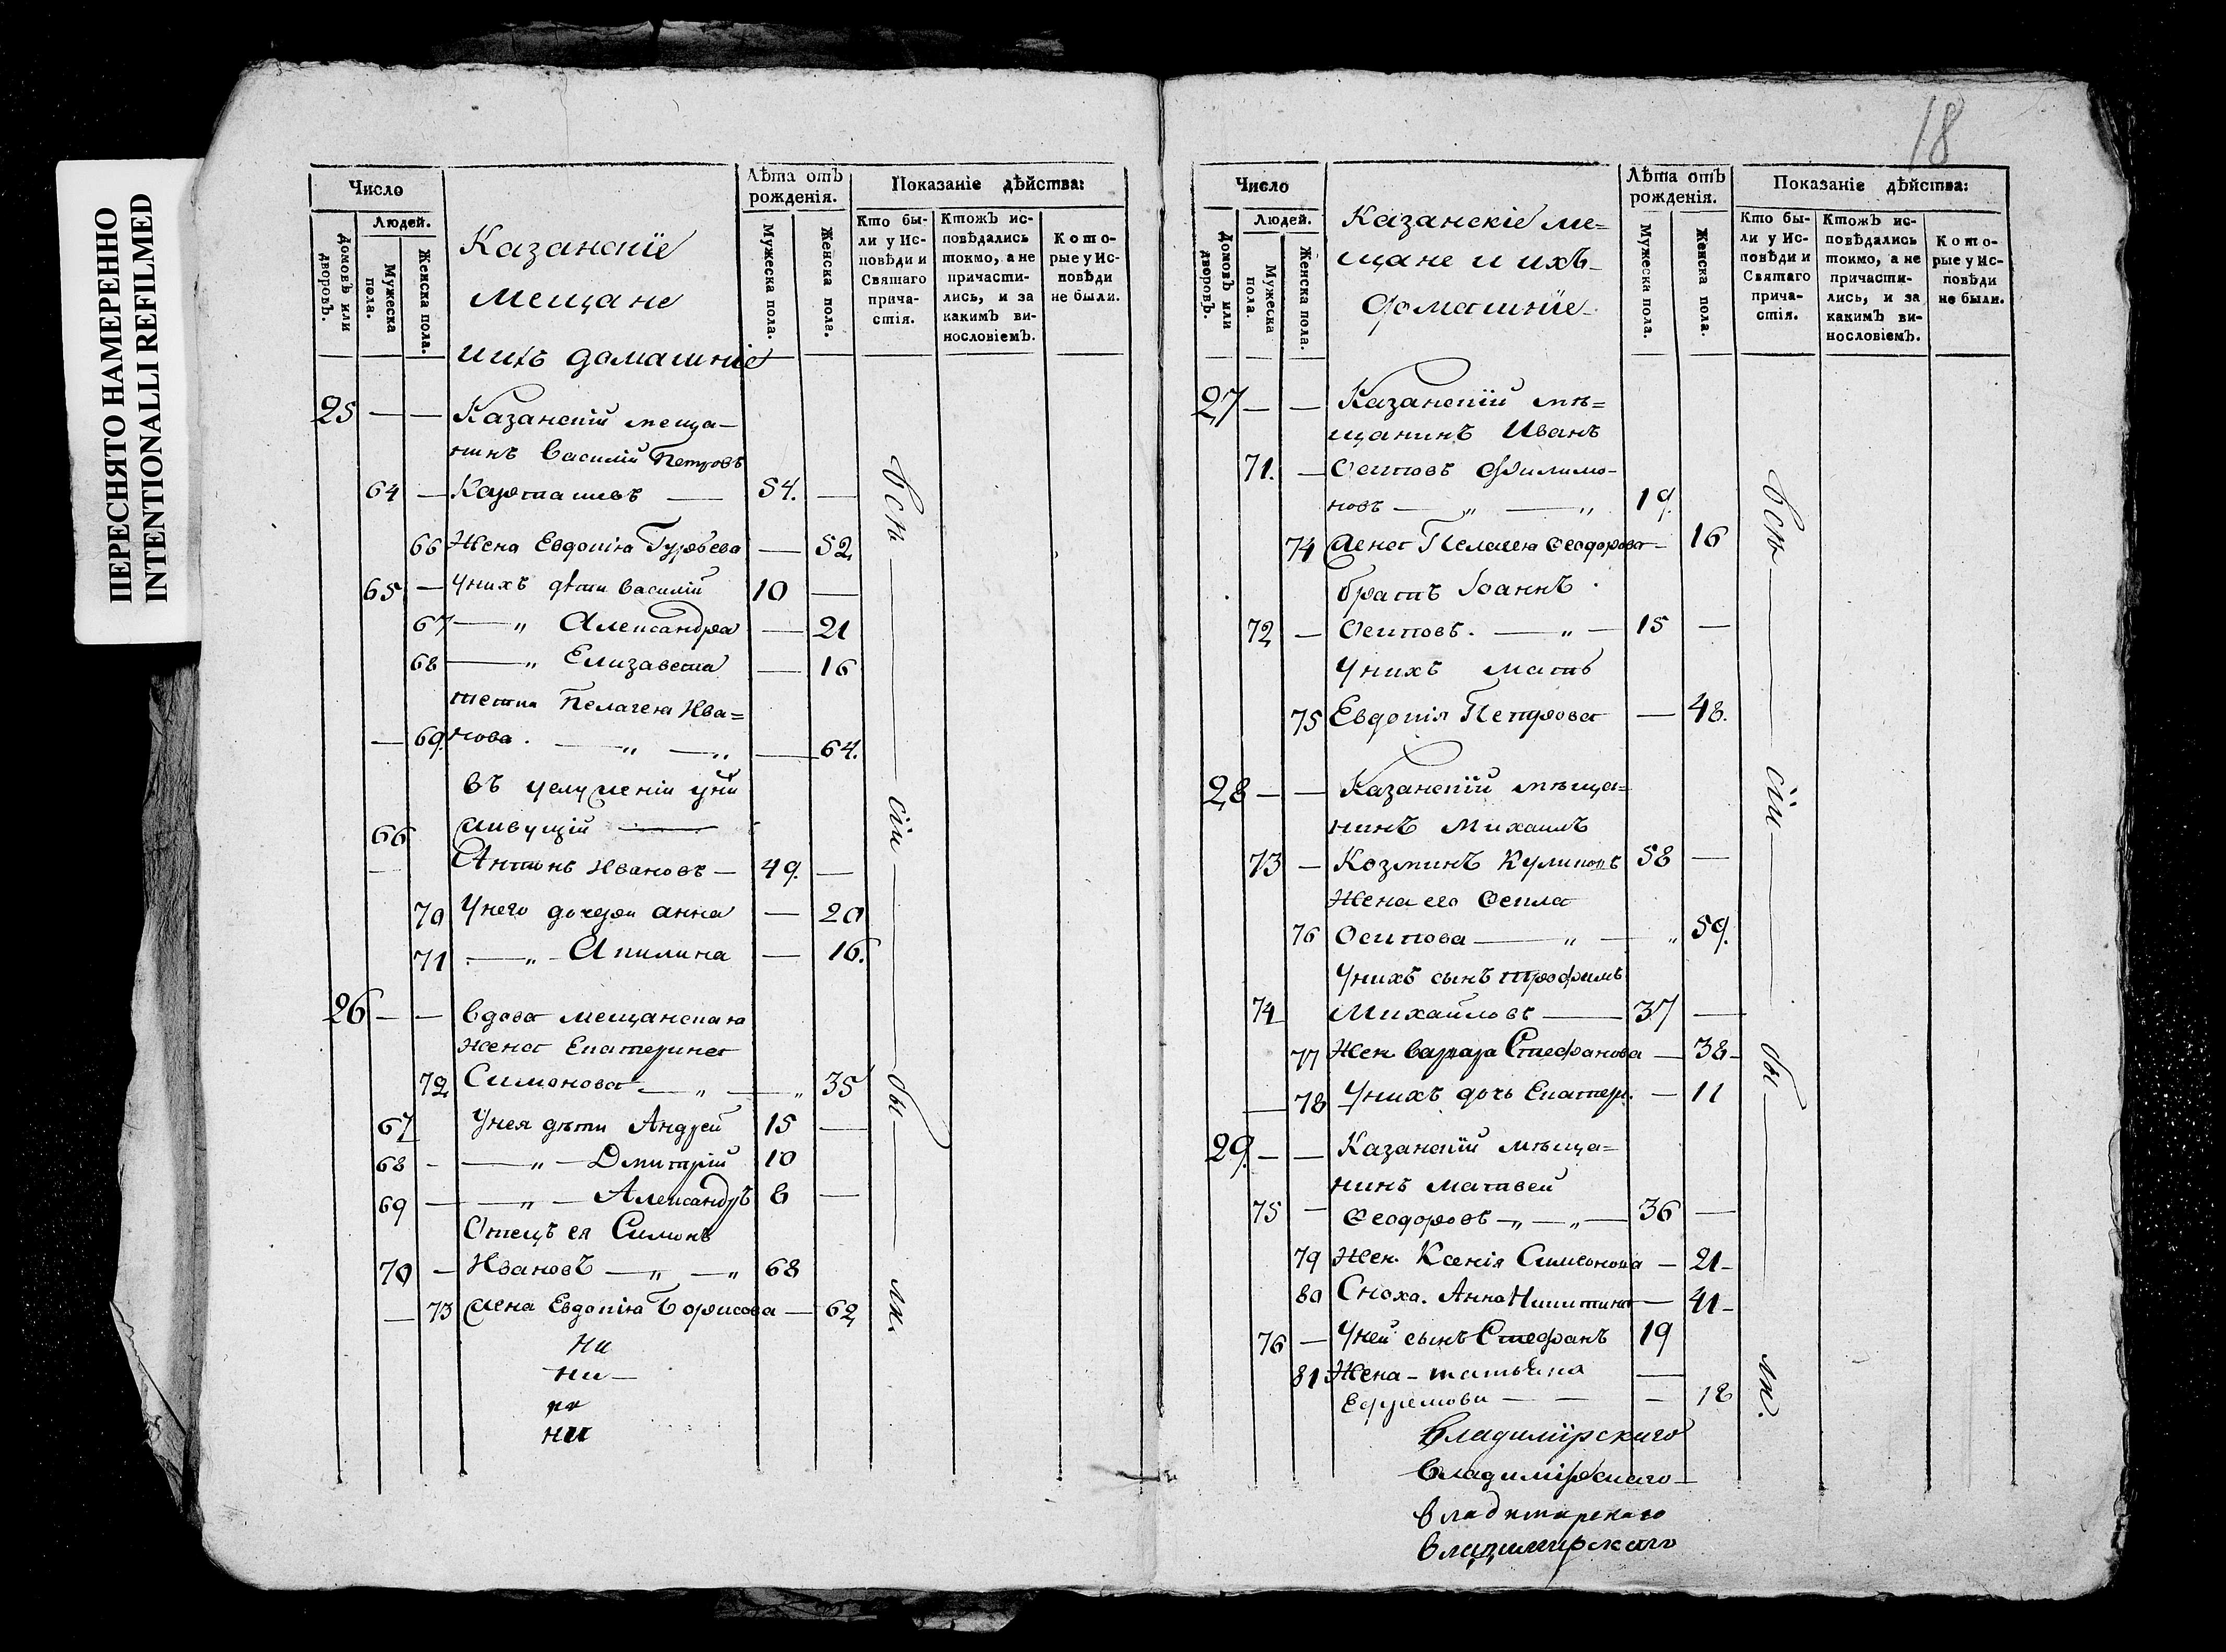 ПЕРЕСНЯТО НАМЕРЕННО
INTENTIONALLI REFILMED
Число
Людей.
Домовъ или дворовъ.
Мужеска пола.
Женска пола.
Казанскіе
мещане
ииъ домашніе
Лѣта отъ рожденія.
Мужеска пола.
Женска пола.
Показаніе дѣйства:
Кто бы-
ли у Ис-
повѣди и
Святаго
прича-
стія.
Ктожъ ис-
повѣдались
токмо, а не
причасти-
лись, и за
какимъ ви-
нословіемъ.
Кото-
рые у Ис-
повѣди
не были.
25 — — Казанскій меща-
нинъ Василій Петровъ
64 — Карташевъ — 54. —
66 Жена Евдокія Гурьева — 52
65 — Унихъ дѣти Василій 10 —
67 — „ Александра — 21
68 — „ Елизавета — 16
тетка Пелагея Ива=
— 69. нова. — „ — „ — 64.
въ
66 живущій —
Антонъ Ивановъ — 49. —
70 Унего дочери Анна — 20
71 — „ — Акилина — 16.
26 — — Вдова мещанская
жена Екатерина
72 Симонова — „ — „ 35
67 Унея дѣти Андрей 15 —
68 - — „ — Дмитрій 10
69 — — „ — Александръ 8 —
Отецъ ея Симонъ
70 — Ивановъ — „ — „ 68
— 73 жена Евдокія Борисова — 62
Всѣ — сіи — бы — ли.
ни
ни —
ни
ни
18
Число
Людей.
Домовъ или дворовъ.
Мужеска пола.
Женска пола.
Казанскіе ме=
щане и ихъ
домашніе
Лѣта отъ рожденія.
Мужеска пола.
Женска пола.
Показаніе дѣйства:
Кто бы-
ли у Ис-
повѣди и
Святаго
прича-
стія.
Ктожъ ис-
повѣдались
токмо, а не
причасти-
лись, и за
какимъ ви-
нословіемъ.
Кото-
рые у Ис-
повѣди
не были.
27 — — Казанскій мѣ=
щанинъ Иванъ
71. — Осиповъ Филимо-
новъ — „ — „ 19.
74 жена Пелагея Феодорова — 16
братъ Іоаннъ
72 — Осиповъ. — „ — 15 —
Унихъ мать
75 Евдокія Петрова — 48.
28 — — Казанскій мѣща=
нинъ Михаилъ
73 — Козминъ Куликовъ 58 —
Жена его Фекла
76 Осипова — „ — „ 59.
Унихъ сынъ Трофимъ
74 Михайловъ — 37 —
77 Жен. Варвара Стефанова — 38 -
— 78 Унихъ дочь Екатери. — 11
29. — — Казанскій мѣща=
нинъ Матвей
75 — Феодоровъ — „ — „ — 36 —
79 Жен. Ксенія Симеонова — 21 -
80 Сноха. Анна Никитина — 41 -
76 — Уней сынъ Стефанъ 19
81 Жена - татьяна —
Ефремова — — — 18
Всѣ — сіи — бы — ли.
Владимірскаго
Владимірскаго —
Владимирскаго
Владимирскаго